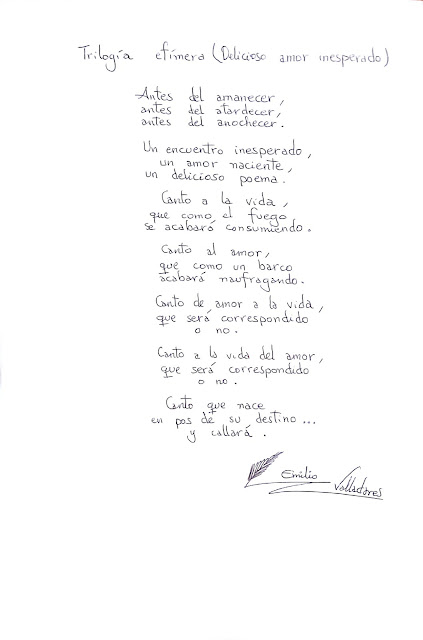 Trilogía efímera (Delicioso amor inesperado)
Antes del amanecer,
antes del atardecer,
antes del anochecer.
Un encuentro inesperado,
un amor naciente,
un delicioso poema.
Canto a la vida,
que como el fuego
se acabará consumiendo.
Canto al amor,
que como un barco
acabará naufragando.
Canto de amor a la vida,
que será correspondido
o no.
Canto a la vida del amor,
que será correspondido
o no.
Canto que nace
en pos de su destino...
y callará.
Emilio Valladares